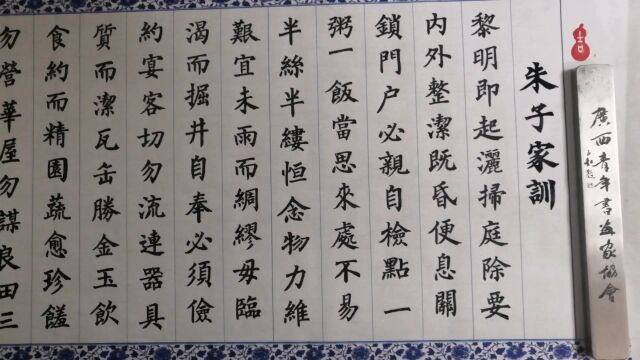 朱子家訓
黎明即起灑掃庭除要
内外整潔既昏便息關
鎖門户必親自檢點一
粥一飯當思來處不易
半絲半縷恒念物力維
艱宜未雨而綢繆毋臨
渴而掘井自奉必須儉
約宴客切勿流連器具
質而潔瓦缶勝金玉飲
食約而精園蔬愈珍饈
勿營華屋勿謀良田三
廣西青年書畫家協會